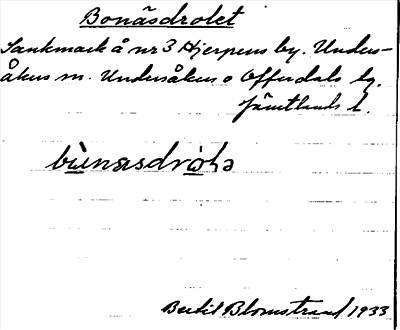 Bonäsdrolet
Sankmark å nr 3 Hjerpens by. Unders-
åkers sn. Undersåkers o Offerdals tg.
Jämtlands l.
bùnasdròlə
Bertil Blomstrand 1933